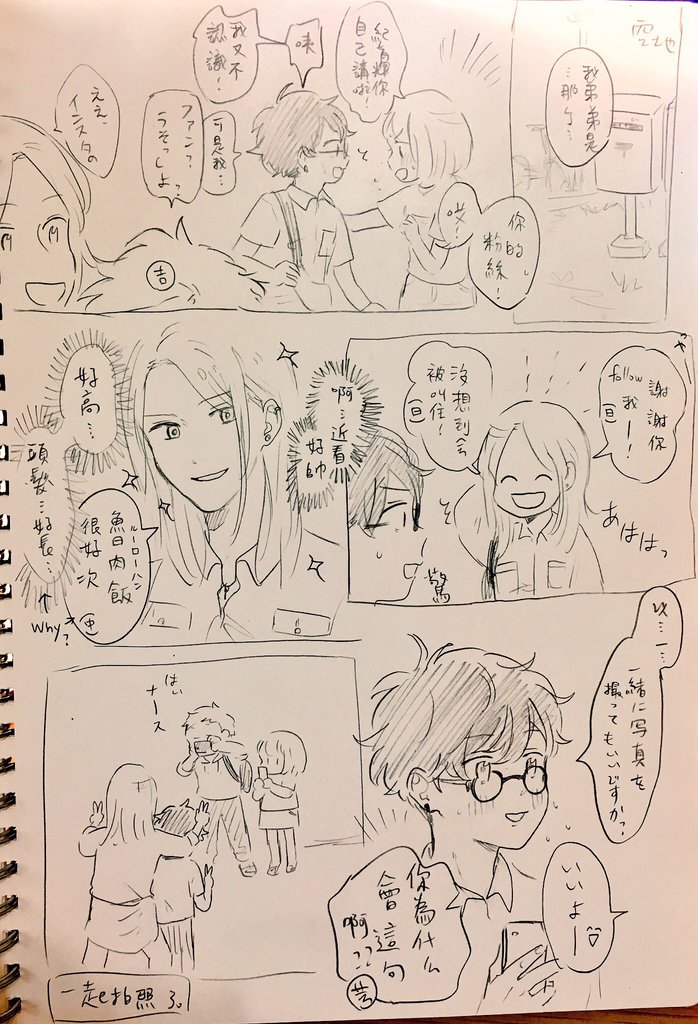 雲地
我弟弟是
…那个…
你的
粉絲!
哎!
紀育輝你
自己講啦!
咦
我又不
認識!
可是我…
ファン?
うそっしょ?
吉
ええ、
インスタの
謝謝你
follow
我ー!
亘
沒想到会
被叫住!
亘
あははっ
驚
啊…近看
好帥
好高…
頭髮…好長…
↑
Why?
魯肉飯
ルーローハン
很好次
亘
一緒に写真を
撮ってもいいですか?
いいよー
你為什么
會這句
啊??
はい
チーズ
一起拍照了。